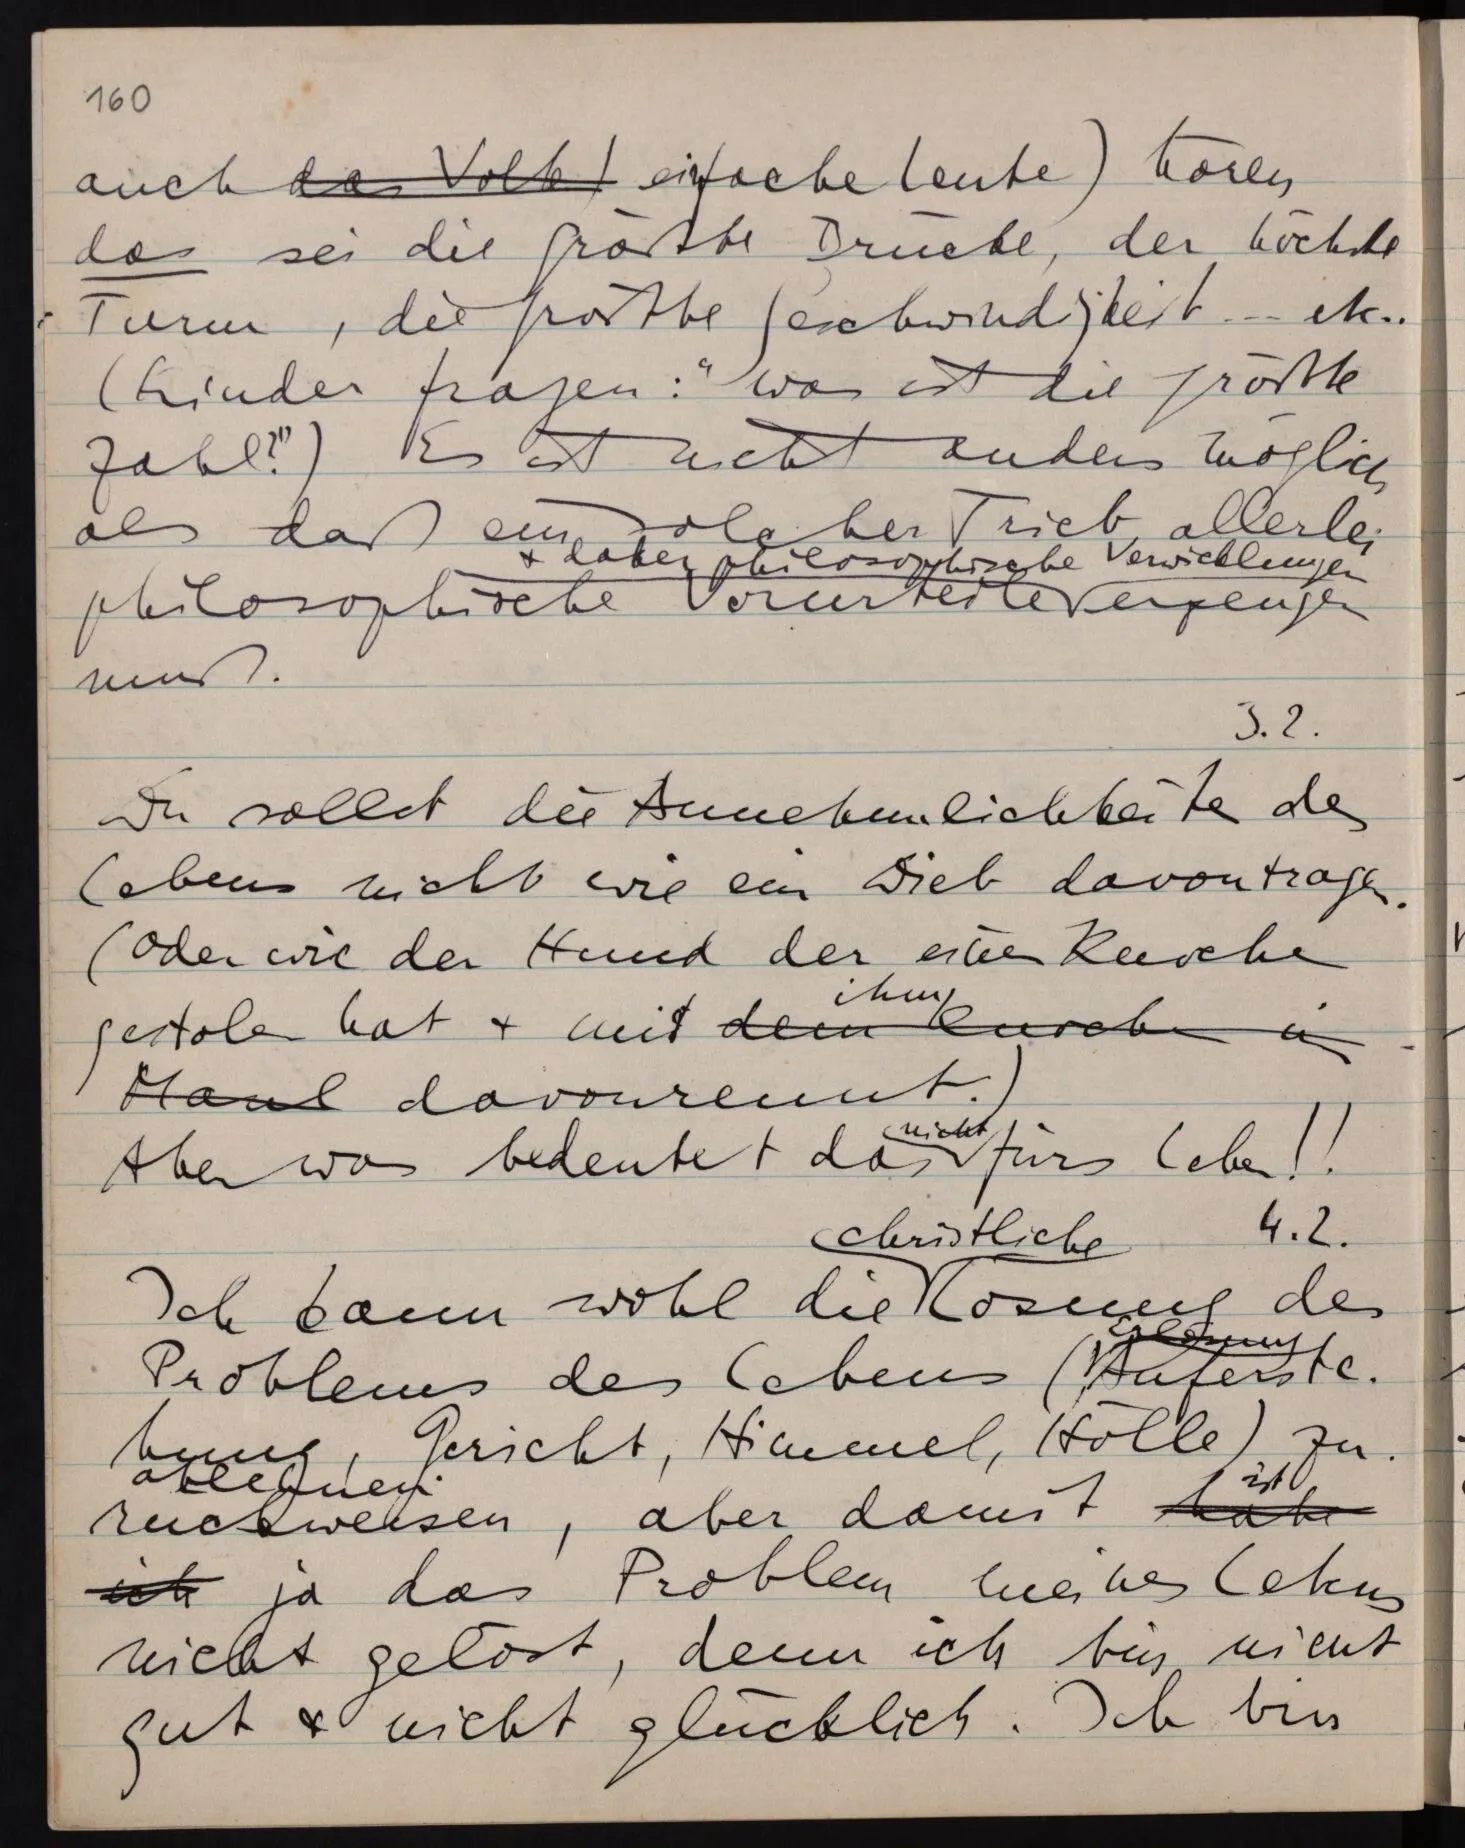 160
auch das Volk) einfache Leute) hören
das sei die größte Brücke, der höchste
Turm, die größte Geschwindigkeit ... etc..
(Kinder fragen: "was ist die größte
Zahl?") Es ist nicht anders möglich
als daß ein solcher Trieb allerlei
+ daher philosophische Verwicklungen
philosophische Vorurteile erzeugen
muß.
3.2.
Du sollst die Annehmlichkeiten des
Lebens nicht wie ein Dieb davontragen.
(Oder wie der Hund der einen Knochen
ihm
gestolen hat + mit dem Knochen im
Maul davonrennt.)
nicht
Aber was bedeutet das fürs Leben!!
christliche 4.2.
Ich kann wohl die Lösung des
Erlösung
Problems des Lebens (Auferste-
hung, Gericht, Himmel, Hölle) zu-
ablehnen ist
rückweisen, aber damit habe
ich ja das Problem meines Lebens
nicht gelöst, denn ich bin nicht
gut + nicht glücklich. Ich bin